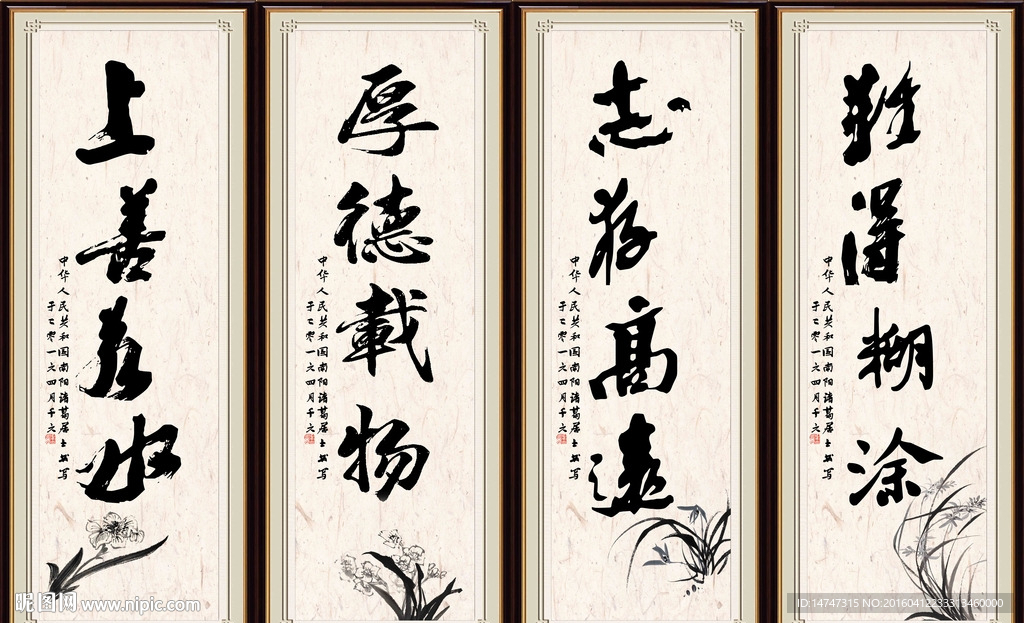 上善若水
中华人民共和国南阳诸葛居士书写
于二零一六四月
厚德载物
中华人民共和国南阳诸葛居士书写
于二零一六四月
志存高遠
中华人民共和国南阳诸葛居士书写
于二零一六四月
难得糊涂
中华人民共和国南阳诸葛居士书写
于二零一六四月
昵图网 www.nipic.com
ID:14747315 NO:20160412233313460000